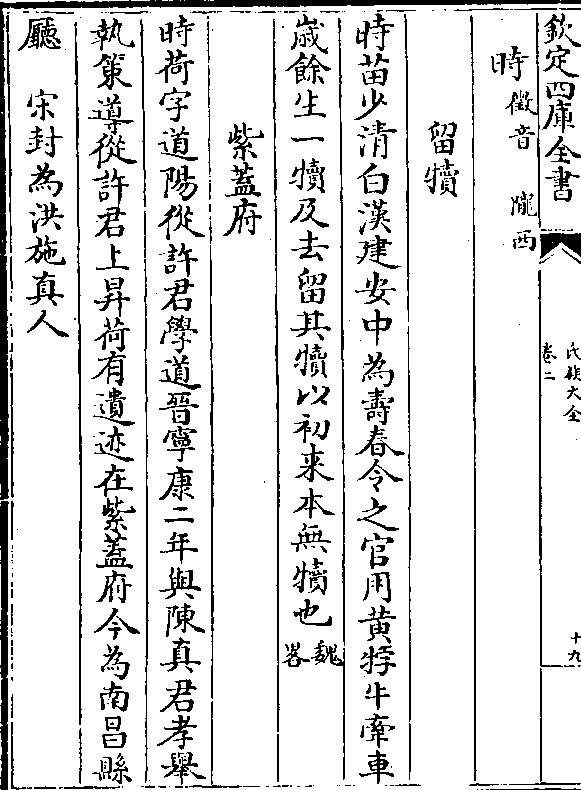 欽定四庫全書
氏族大全
卷二
十九
時徵音 隴西
留犢
時苗少清白漢建安中為壽春令之官用黃牸牛牽車
歲餘生一犢及去留其犢以初來本無犢也魏畧
紫蓋府
時荷字道陽從許君學道晉寧康二年與陳真君孝舉
執策導從許君上昇荷有遺迹在紫蓋府今為南昌縣
廳 宋封為洪施真人